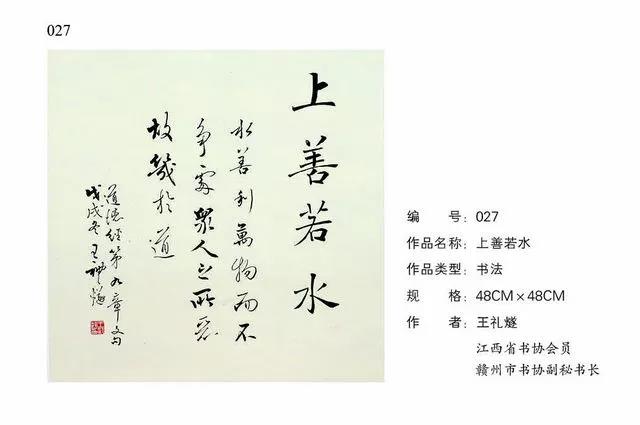 027
上善若水
水善利萬物而不
争處衆人之所惡
故幾於道
道德經第九章文句
戊戌冬王禮燧
编 号：027
作品名称：上善若水
作品类型：书法
规 格：48CM×48CM
作 者：王礼燧
江西省书协会员
赣州市书协副秘书长